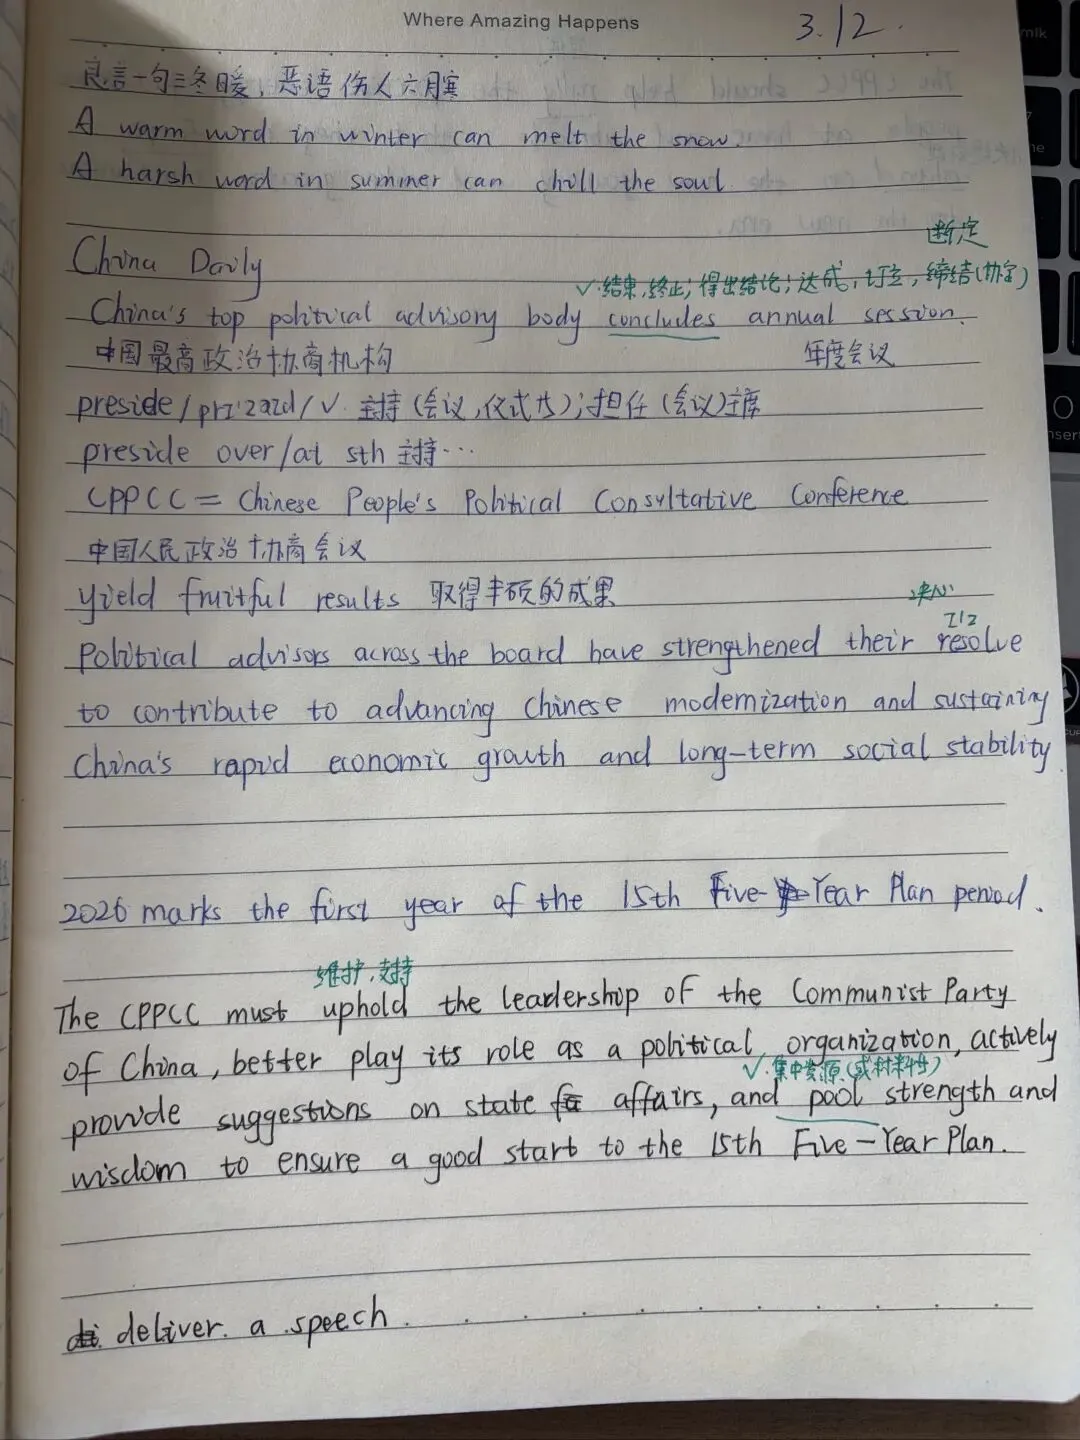 Where Amazing Happens
3.12.
良言一句三冬暖，恶语伤人六月寒
A warm word in winter can melt the snow.
A harsh word in summer can chill the soul.
断定
China Daily
v.结束,终止;得出结论;达成,订立,缔结(协定)
China's top political advisory body concludes annual session.
中国最高政治协商机构 年度会议
preside/prɪ'zaɪd/v. 主持(会议,仪式等);担任(会议)主席
preside over/at sth 主持…
CPPCC = Chinese People's Political Consultative Conference
中国人民政治协商会议
yield fruitful results 取得丰硕的成果
决心
Political advisors across the board have strengthened their resolve
to contribute to advancing Chinese modernization and sustaining
China's rapid economic growth and long-term social stability
2026 marks the first year of the 15th Five-Year Plan period.
维护,支持
The CPPCC must uphold the leadership of the Communist Party
of China, better play its role as a political organization, actively
v.集中资源(或材料等)
provide suggestions on state affairs, and pool strength and
wisdom to ensure a good start to the 15th Five-Year Plan.
deliver a speech.